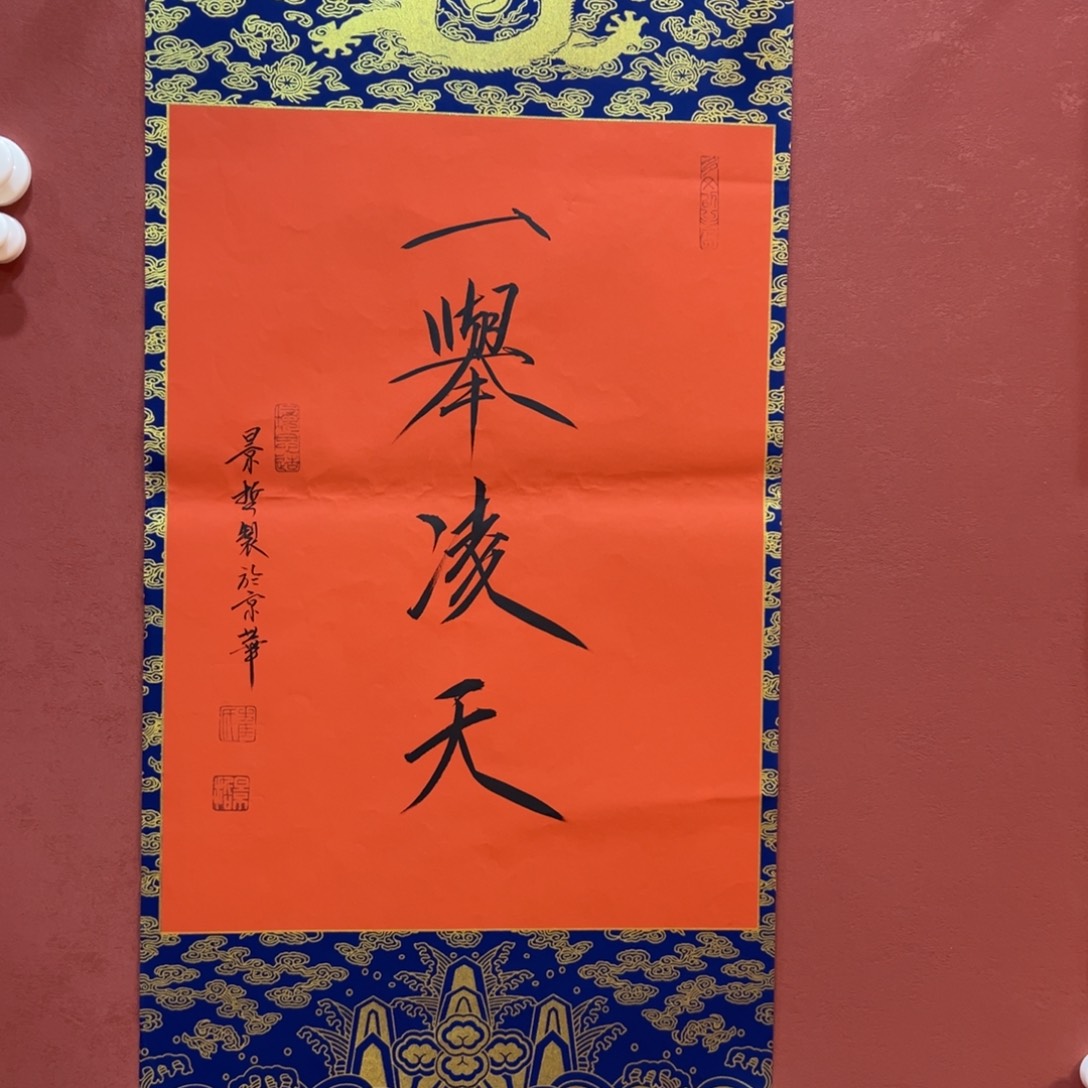 一舉凌天
景哲製於京華